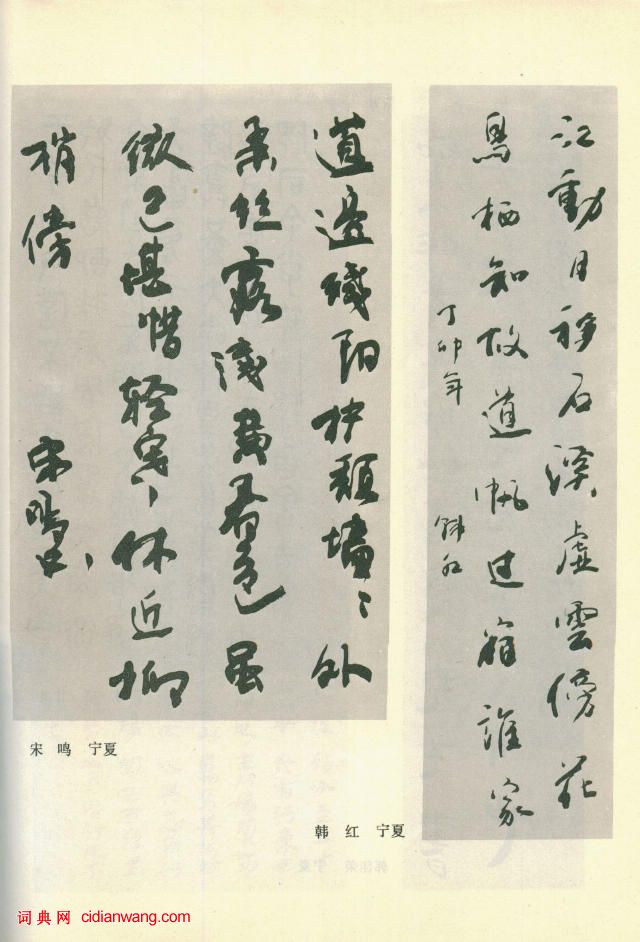 江動月移石溪虚雲傍花
鳥栖知故道帆过宿誰家
丁卯年 韩红
道邊残阳护頹墙〻外
柔丝露浅黄春色虽
微已堪惜轻寒休近柳
梢傍 宋鸣书
宋 鸣 宁夏
韩 红 宁夏
词典网 cidianwang.com